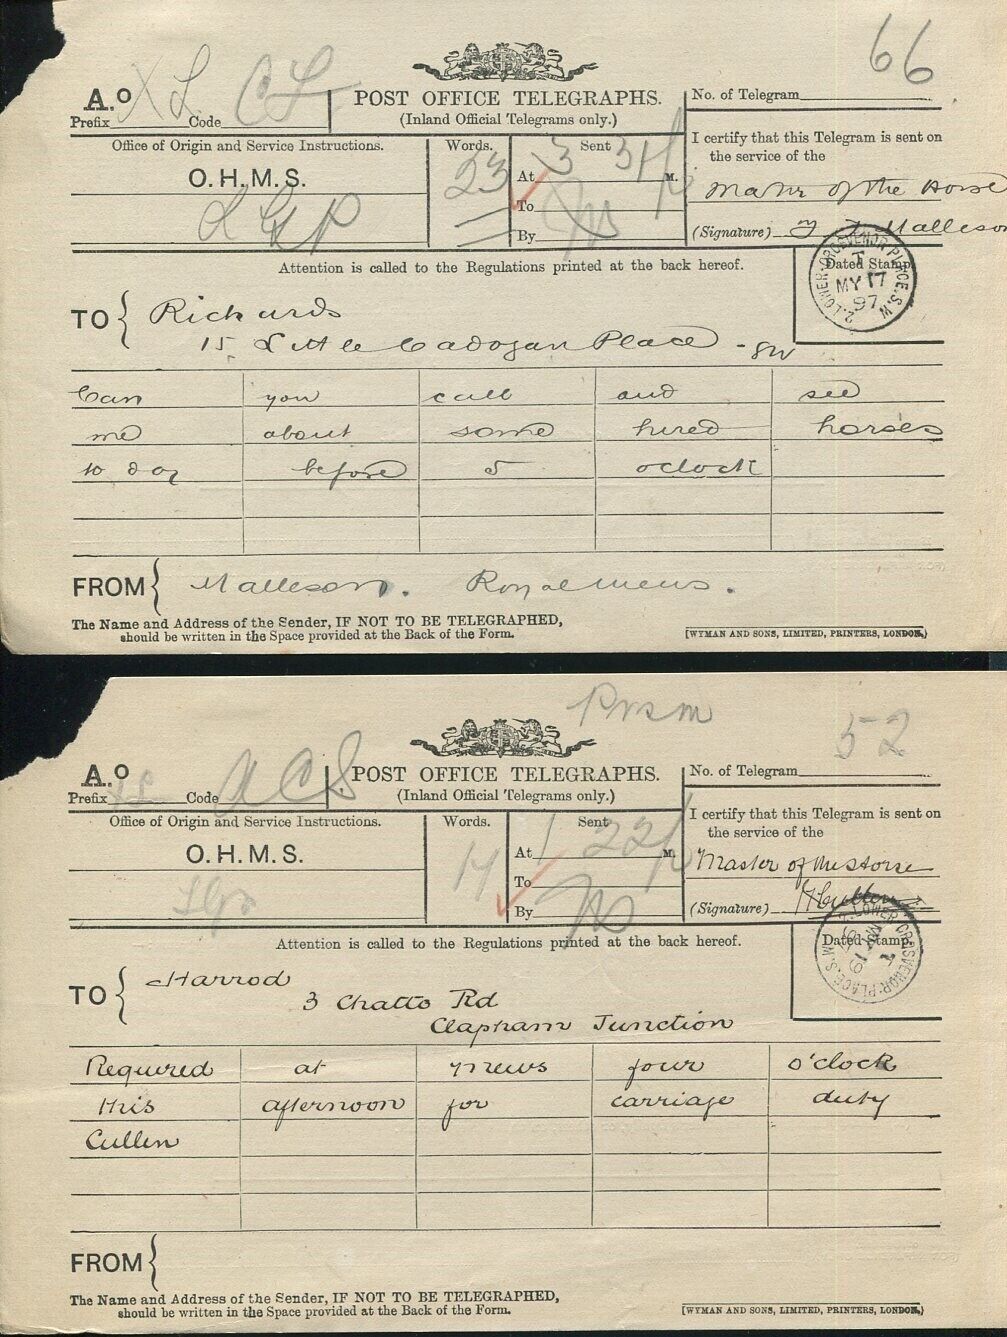 66
A.O XL CL
Prefix Code
POST OFFICE TELEGRAPHS.
(Inland Official Telegrams only.)
No. of Telegram
Office of Origin and Service Instructions.
O.H.M.S.
LGP
Words.
23
Sent
At 3 31 P M.
To
By
I certify that this Telegram is sent on
the service of the
Mastr of the Horse
(Signature) Malleson
Attention is called to the Regulations printed at the back hereof.
Dated Stamp
2. LOWER GROSVENOR PLACE. S.W
MY 17
97
TO { Richards
15 Little Cadogan Place - SW
Can you call and see
me about some hired horses
to day before 5 oclock
FROM { Malleson. Royal mews.
The Name and Address of the Sender, IF NOT TO BE TELEGRAPHED,
should be written in the Space provided at the Back of the Form.
[WYMAN AND SONS, LIMITED, PRINTERS, LONDON.]
52
A.O ACS
Prefix Code
POST OFFICE TELEGRAPHS.
(Inland Official Telegrams only.)
No. of Telegram
Office of Origin and Service Instructions.
O.H.M.S.
Words.
14
Sent
At 1 22 P M.
To
By
I certify that this Telegram is sent on
the service of the
Master of the Horse
(Signature) HCullen
Attention is called to the Regulations printed at the back hereof.
Dated Stamp
LOWER GROSVENOR PLACE. S.W
MY 19
97
TO { Harrod
3 Chatto Rd
Clapham Junction
Required at mews four o'clock
this afternoon for carriage duty
Cullen
FROM {
The Name and Address of the Sender, IF NOT TO BE TELEGRAPHED,
should be written in the Space provided at the Back of the Form.
[WYMAN AND SONS, LIMITED, PRINTERS, LONDON.]